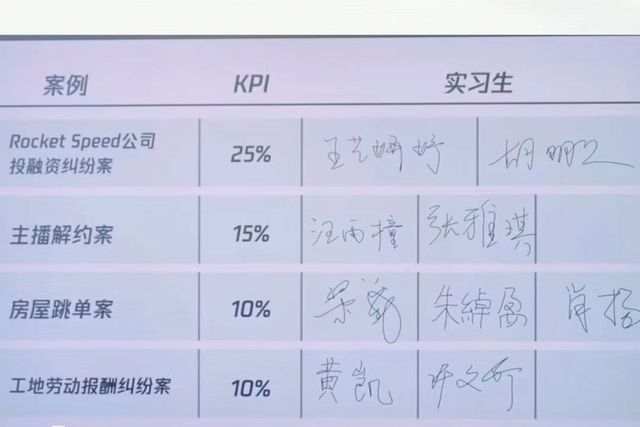 案例 KPI 实习生
Rocket Speed公司
投融资纠纷案 25% 王艺妍婷 胡明义
主播解约案 15% 汪雨橦 张雅琪
房屋跳单案 10% 朱绰盈 肖扬
工地劳动报酬纠纷案 10% 黄凯 许文昕